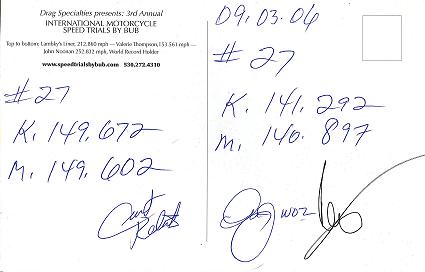 Drag Specialties presents: 3rd Annual
INTERNATIONAL MOTORCYCLE
SPEED TRIALS BY BUB
Top to bottom: Lambky's Liner, 212.860 mph — Valerie Thompson, 153.561 mph —
John Noonan 252.832 mph, World Record Holder
www.speedtrialsbybub.com 530.272.4310
#27
K. 149.672
M. 149.602
09.03.06
#27
K. 141.292
M. 140.897